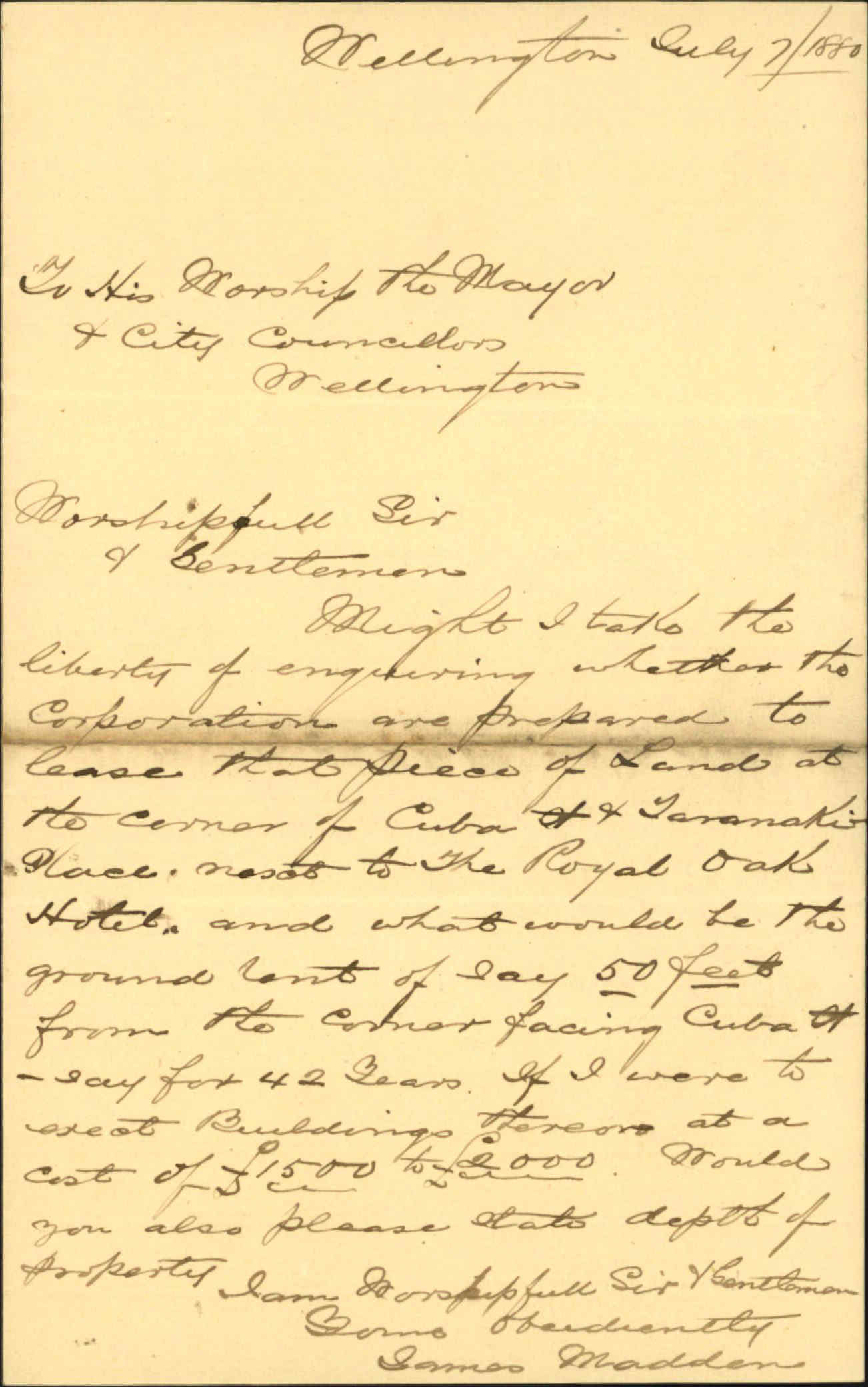 Wellington July 7/1880
To His Worship the Mayor
& City Councillors
Wellington
Worshipfull Sir
& Gentlemen
Might I take the
liberty of enquiring whether the
Corporation are prepared to
lease that piece of Land at
the corner of Cuba St & Taranaki
Place. next to The Royal Oak
Hotel. and what would be the
ground rent of say 50 feet
from the corner facing Cuba St
- say for 42 Years. If I were to
erect Buildings thereon at a
cost of £1500 to £2000. Would
you also please state depth of
property
I am Worshipfull Sir & Gentlemen
Yours obediently
James Madden